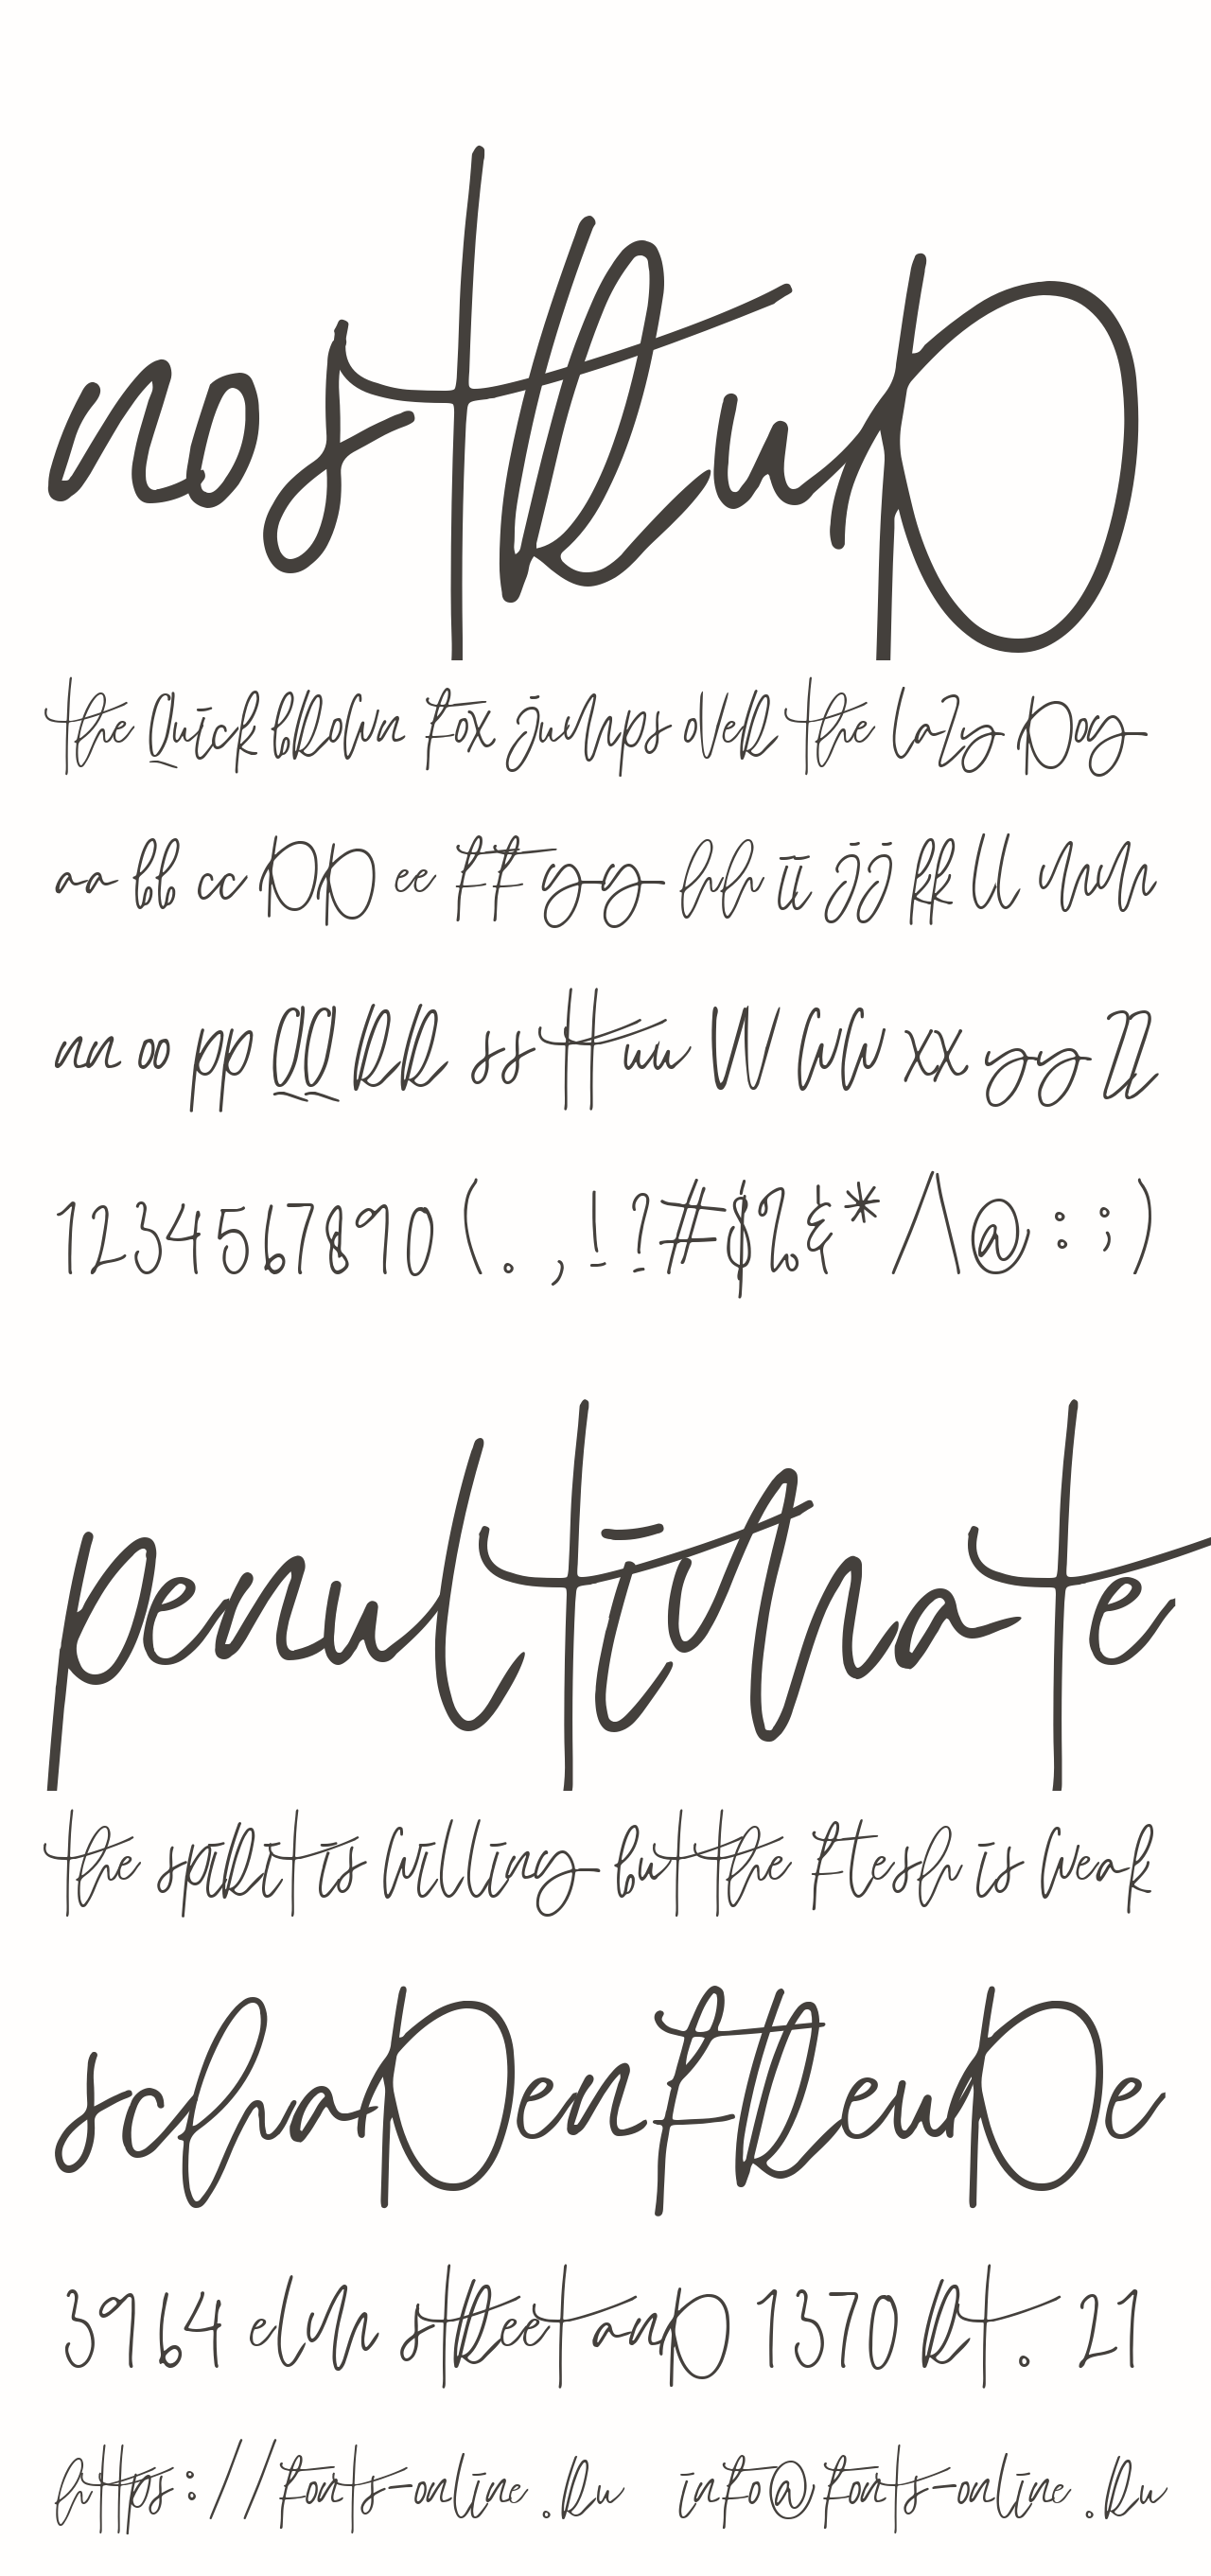 nostRuD
the Quick bRown fox jumps oveR the lazy Dog
aa bb cc DD ee ff gg hh ii jj kk ll mm
nn oo pp QQ RR ss tt uu vv ww xx yy zz
1234567890 (.,!?#$%&*/\@:;)
penultimate
the spiRit is willing but the flesh is weak
schaDenfReuDe
3964 elm stReet anD 1370 Rt. 21
https://fonts-online.Ru info@fonts-online.Ru